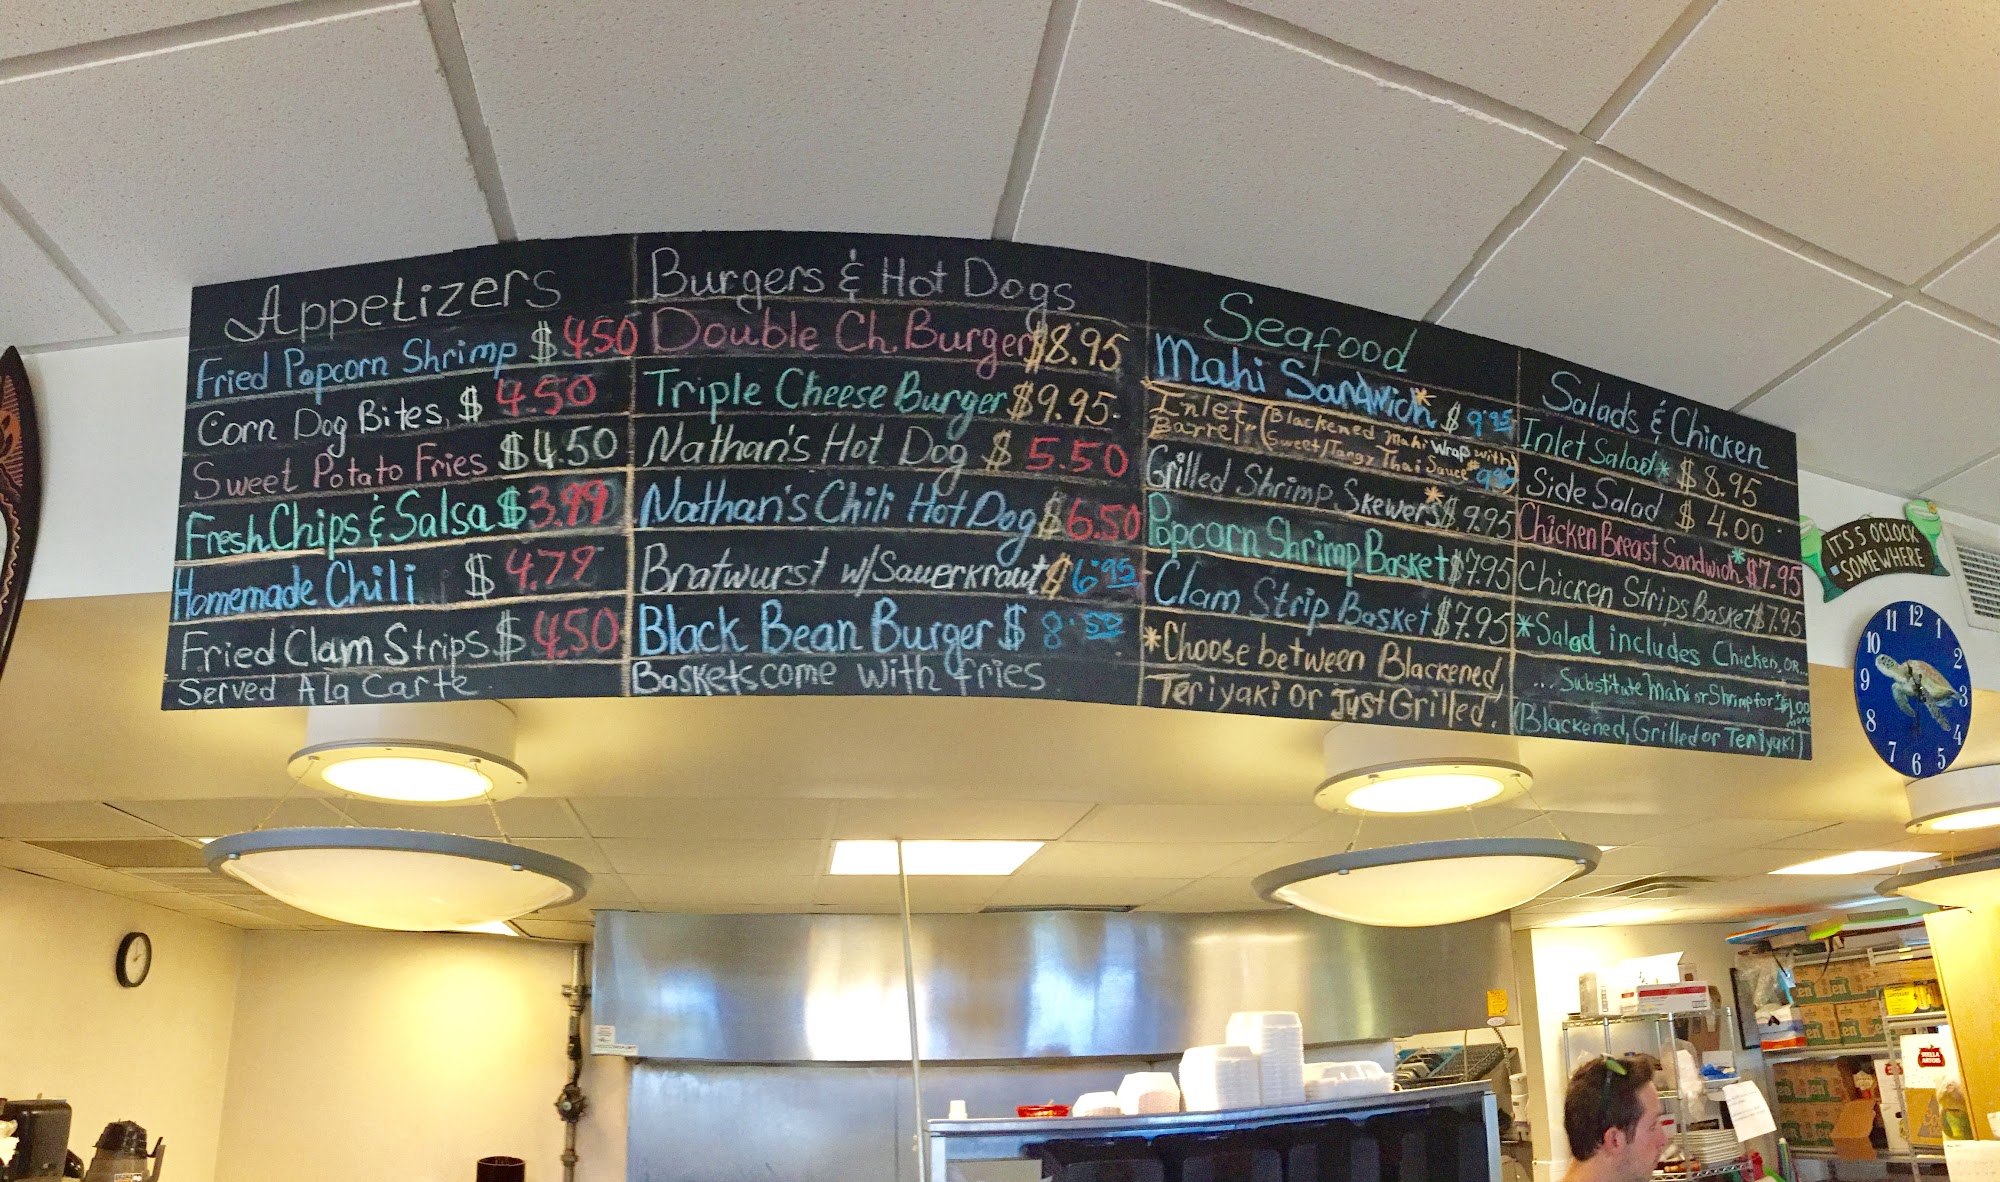 Appetizers
Fried Popcorn Shrimp $4.50
Corn Dog Bites $4.50
Sweet Potato Fries $4.50
Fresh Chips & Salsa $3.99
Homemade Chili $4.79
Fried Clam Strips $4.50
Served A la Carte
Burgers & Hot Dogs
Double Ch. Burger $8.95
Triple Cheese Burger $9.95
Nathan's Hot Dog $5.50
Nathan's Chili Hot Dog $6.50
Bratwurst w/Sauerkraut $6.95
Black Bean Burger $8.50
Baskets come with fries
Seafood
Mahi Sandwich* $9.95
Inlet Barrel - (Blackened Mahi Wrap with
Sweet/Tangy Thai Sauce) $9.95
Grilled Shrimp Skewers* $9.95
Popcorn Shrimp Basket $7.95
Clam Strip Basket $7.95
*Choose between Blackened,
Teriyaki or Just Grilled.
Salads & Chicken
Inlet Salad* $8.95
Side Salad $4.00
Chicken Breast Sandwich* $7.95
Chicken Strips Basket $7.95
*Salad includes Chicken, or...
...Substitute Mahi or Shrimp for $1.00 more
(Blackened, Grilled or Teriyaki)
IT'S 5 O'CLOCK
SOMEWHERE
12 1 2 3 4 5 6 7 8 9 10 11
STELLA
ARTOIS